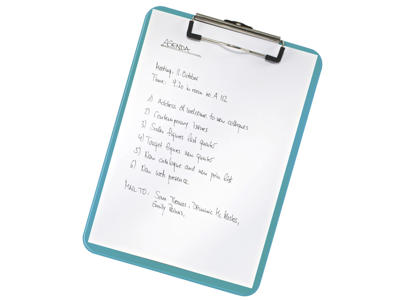 AGENDA
Meeting, 11. October
Time: 9.20 in room no. A 112
1) Address of welcome to new collegues
2) Contemporary issues
3) Sales figures last quarter
4) Target figures new quarter
5) New catalogue and new price list
6) New web presence
MAIL TO: Sam Thomas, Dominic Mc
Emily